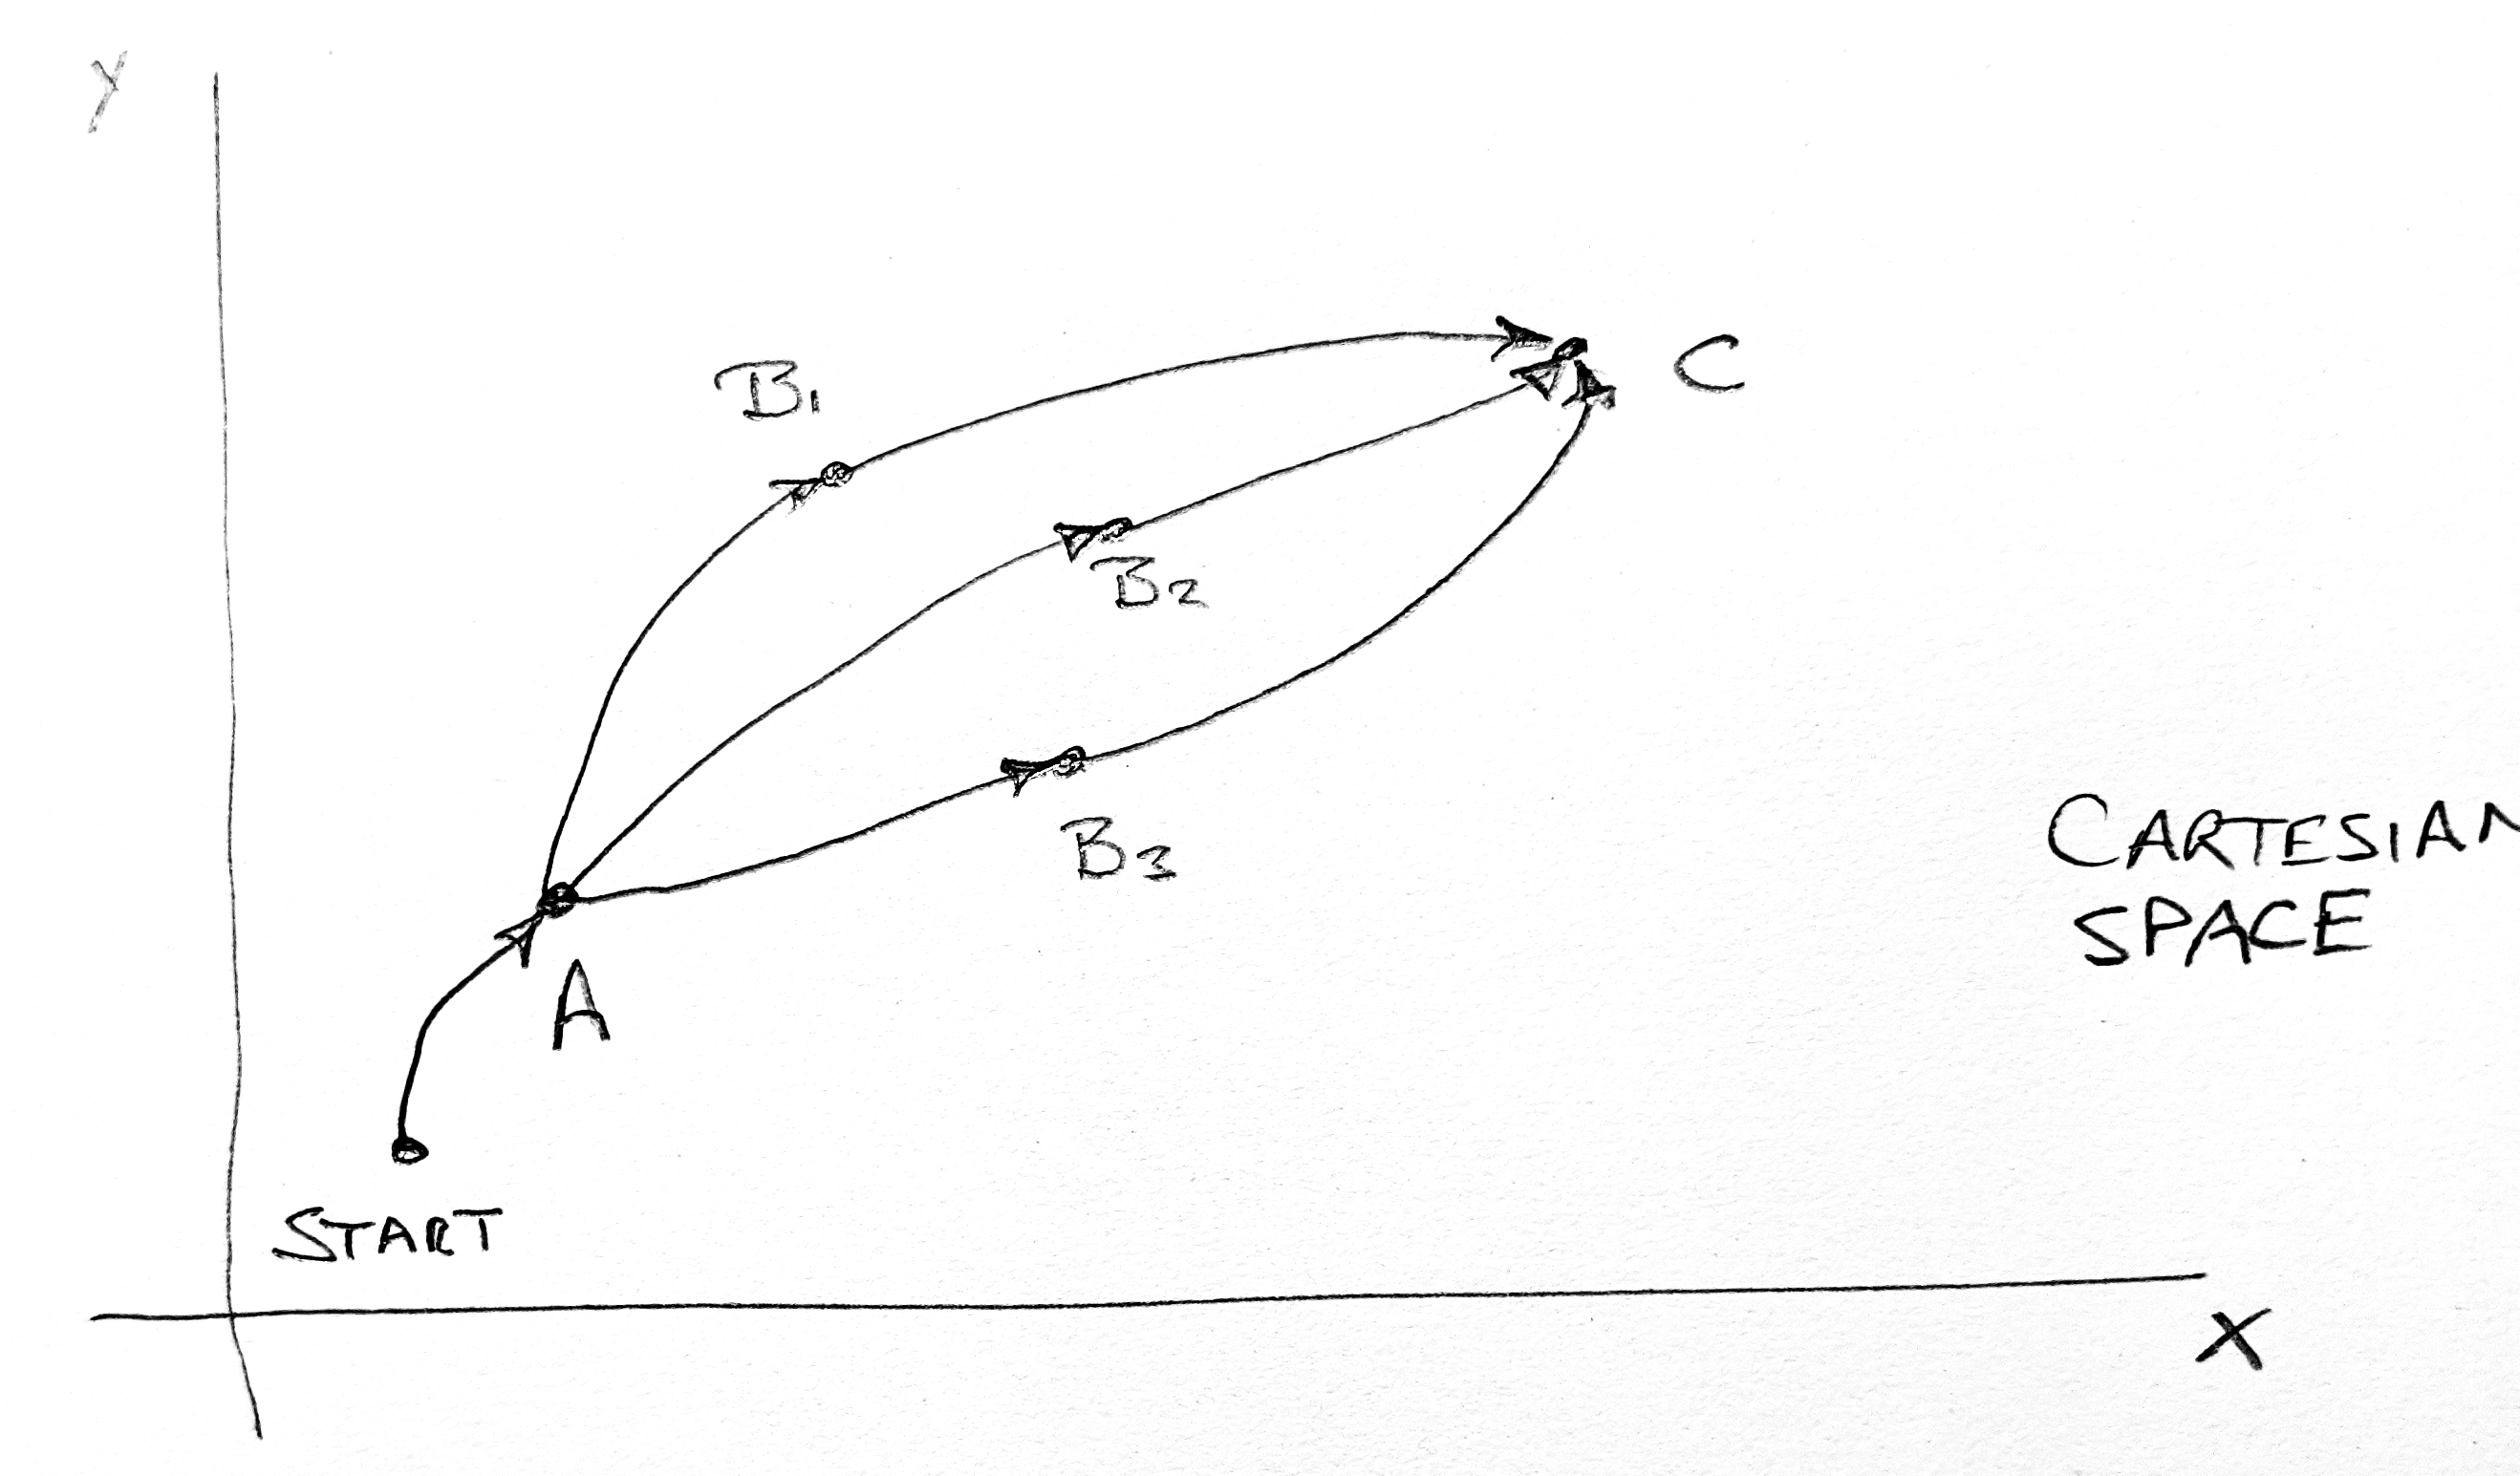 Y
B1
C
B2
B3
CARTESIAN
SPACE
A
START
X